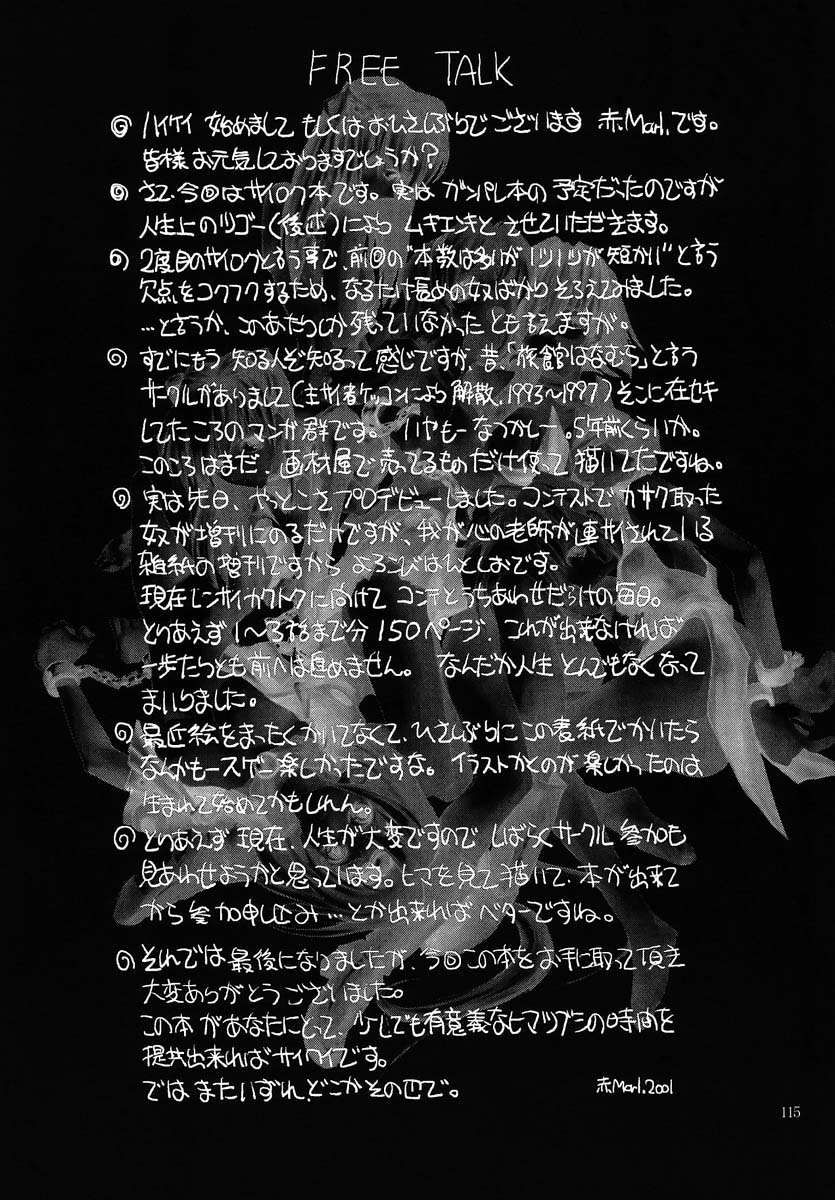 FREE TALK
◎ ハイケイ 始めまして もしくは おひさしぶりでございます 赤Marl.です。
皆様 お元気しておりますでしょうか?
◎ さて、今回はサイロク本です。実は ガンパレ本の予定だったのですが
人生上のツゴー(後述)により ムキエンキと させていただきます。
◎ 2度目のサイロクと言う事で、前回の"本数は多いが1ツ1ツが短かい"と言う
欠点をコクフクするため、なるたけ長めの奴ばかり そろえてみました。
…と言うか、このあたりしか残っていなかった とも言えますが。
◎ すでにもう 知る人ぞ知るって感じですが、昔、「旅館はなむら」と言う
サークルがありまして(主サイ者ケッコンにより解散、1993〜1997)そこに在セキ
してたころのマンガ群です。 いやもーなつかしー。5年前くらいか。
このころはまだ、画材屋で売ってるものだけ使って描いてたですね。
◎ 実は先日、やっとこさプロデビューしました。コンテストでカサク取った
奴が増刊にのるだけですが、我が心の老師が連サイされている
雑紙の増刊ですから よろこびはひとしおです。
現在レンサイカクトクに向けて コンテとうちあわせだらけの毎日。
とりあえず1〜3話まで分150ページ、これが出来なければ
一歩たりとも前へは進めません。 なんだか人生 とんでもなくなって
まいりました。
◎ 最近絵をまったくかいてなくて、ひさしぶりにこの表紙でかいたら
なんかもースゲー楽しかったですな。イラストかくのが楽しかったのは
生まれて始めてかもしれん。
◎ とりあえず 現在、人生が大変ですので しばらくサークル参加も
見あわせようかと思っています。ヒマを見て描いて、本が出来て
から参加申し込み…とか出来ればベターですね。
◎ それでは最後になりましたが、今回この本をお手に取って頂き
大変ありがとうございました。
この本があなたにとって、少しでも有意義なヒマツブシの時間を
提共出来ればサイワイです。
では またいずれ、どこかその辺で。
赤Marl.2001
115